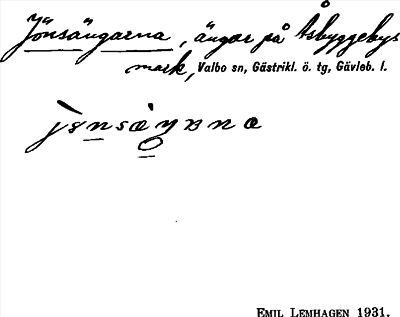 Jönsängarna, ängar på Åsbyggebys
mark, Valbo sn, Gästrikl. ö. tg, Gävleb. l.
EMIL LEMHAGEN 1931.